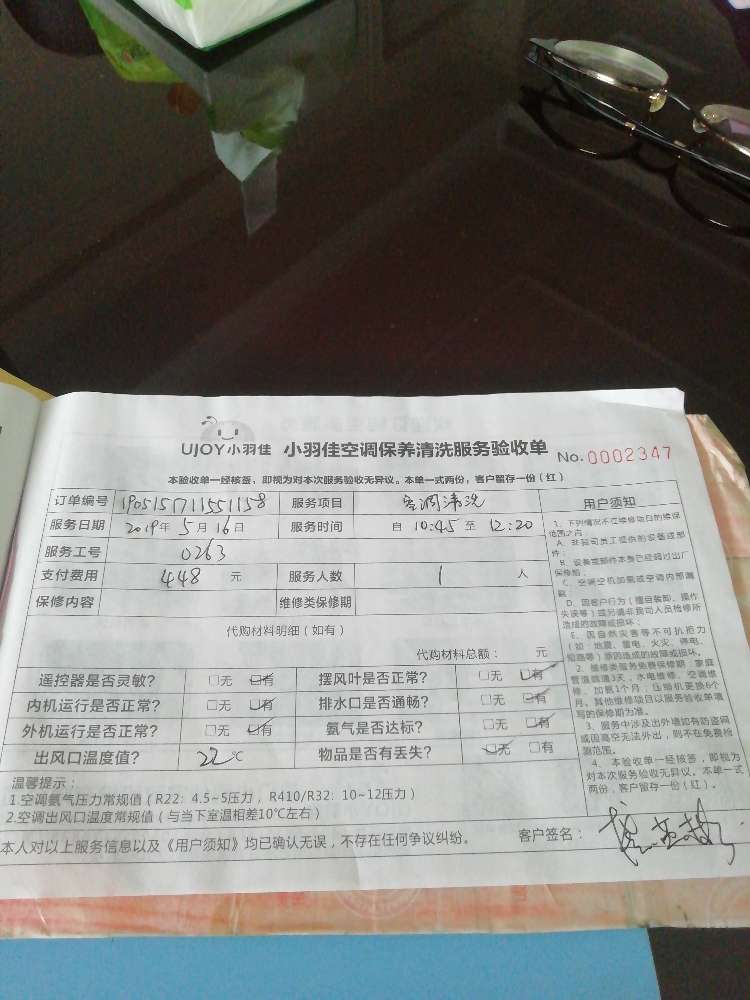 UJOY小羽佳 小羽佳空调保养清洗服务验收单 No.0002347
本验收单一经核签，即视为对本次服务验收无异议。本单一式两份，客户留存一份（红）
订单编号 190515171155
服务项目 空调清洗
服务日期 2019年5月16日
服务时间 自 10:45 至 12:20
服务工号 0263
支付费用 448 元
服务人数 1 人
保修内容 维修类保修期
代购材料明细（如有）
代购材料总额： 元
遥控器是否灵敏？ □无 □有
摆风叶是否正常？ □无 □有
内机运行是否正常？ □无 □有
排水口是否通畅？ □无 □有
外机运行是否正常？ □无 □有
氨气是否达标？ □无 □有
出风口温度值？ 22℃
物品是否有丢失？ □无 □有
温馨提示：
1.空调氨气压力常规值（R22：4.5~5压力，R410/R32：10~12压力）
2.空调出风口温度常规值（与当下室温相差10℃左右）
本人对以上服务信息以及《用户须知》均已确认无误，不存在任何争议纠纷。 客户签名：
用户须知
1、下列情况不在维修项目的维保
范围之内：
A、非我司员工提供的设备或部
件；
B、设备或部件本身已经超过出厂
保修期；
C、空调空机加氟或空调内部漏
氟；
D、因客户行为（擅自装卸、操作
失误等）或另请非我司人员检修所
造成的故障或损坏；
E、因自然灾害等不可抗拒力
（如：地震、雷电、火灾、停电、
短路等）原因造成的故障或损坏。
2、维修类服务免费保修期：家庭
管道疏通3天，水电维修、空调维
修、加氨1个月，压缩机更换6个
月，其他维修项目以服务验收单填
写的保修期为准。
3、服务中涉及出外墙如有防盗网
或因高空无法外出，则不在免费检
测范围。
4、本验收单一经核签，即视为
对本次服务验收无异议。本单一式
两份，客户留存一份（红）。